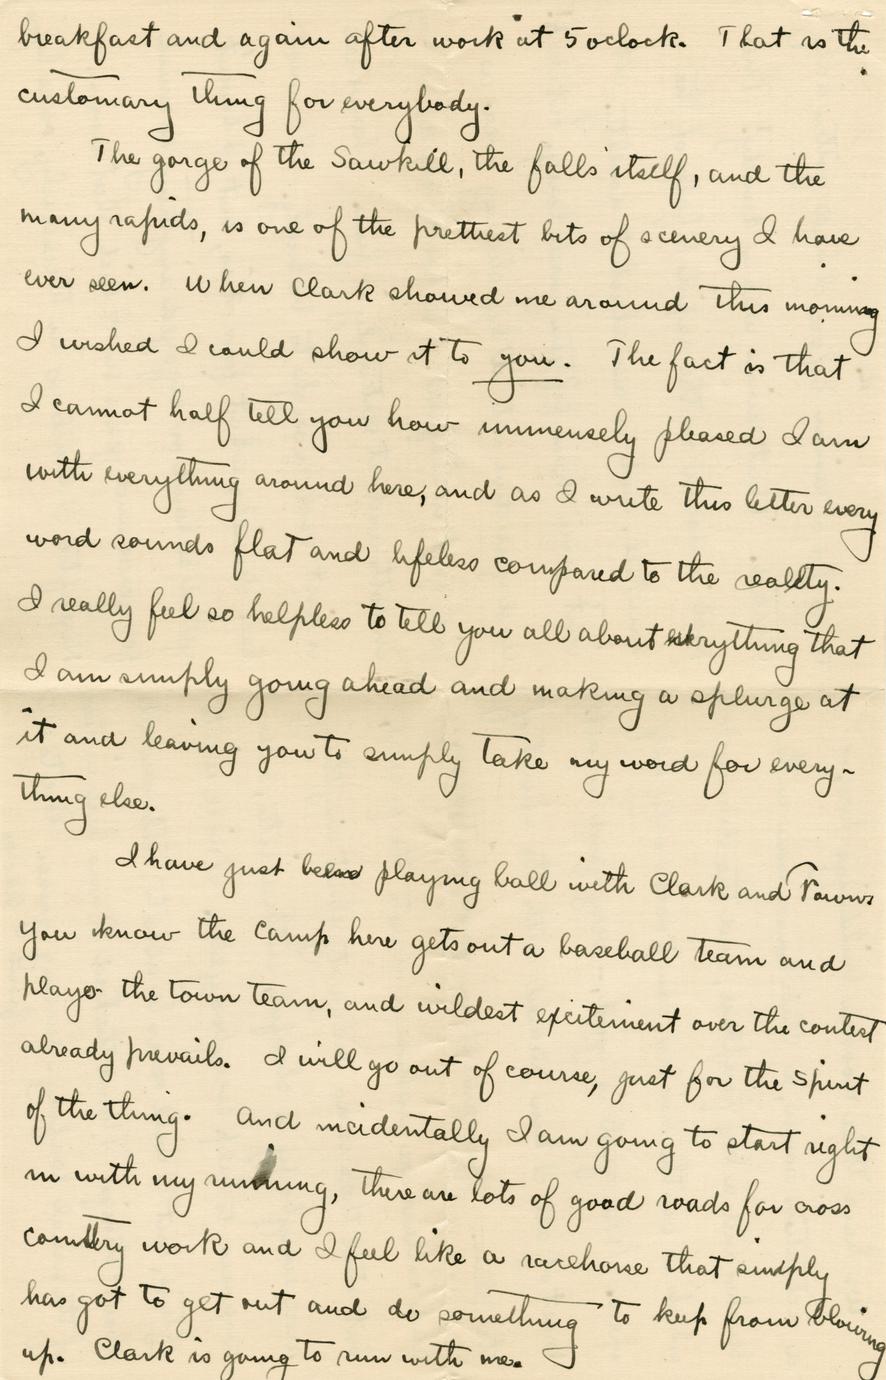 breakfast and again after work at 5 oclock. That is the
customary thing for everybody.
The gorge of the Sawkill, the falls itself, and the
many rapids, is one of the prettiest bits of scenery I have
ever seen. When Clark showed me around this morning
I wished I could show it to you. The fact is that
I cannot half tell you how immensely pleased I am
with everything around here, and as I write this letter every
word sounds flat and lifeless compared to the reality.
I really feel so helpless to tell you all about everything that
I am simply going ahead and making a splurge at
it and leaving you to simply take my word for every-
thing else.
I have just been playing ball with Clark and
You know the camp here gets out a baseball team and
plays the town team, and wildest excitement over the contest
already prevails. I will go out of course, just for the spirit
of the thing. And incidentally I am going to start right
in with my running, there are lots of good roads for cross
country work and I feel like a racehorse that simply
has got to get out and do something to keep from blowing
up. Clark is going to run with me.